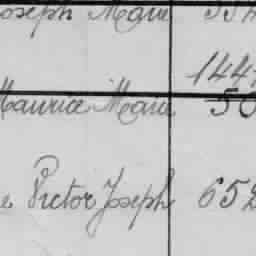 Joseph Marie
144
Maurice Marie 50
Victor Joseph 652